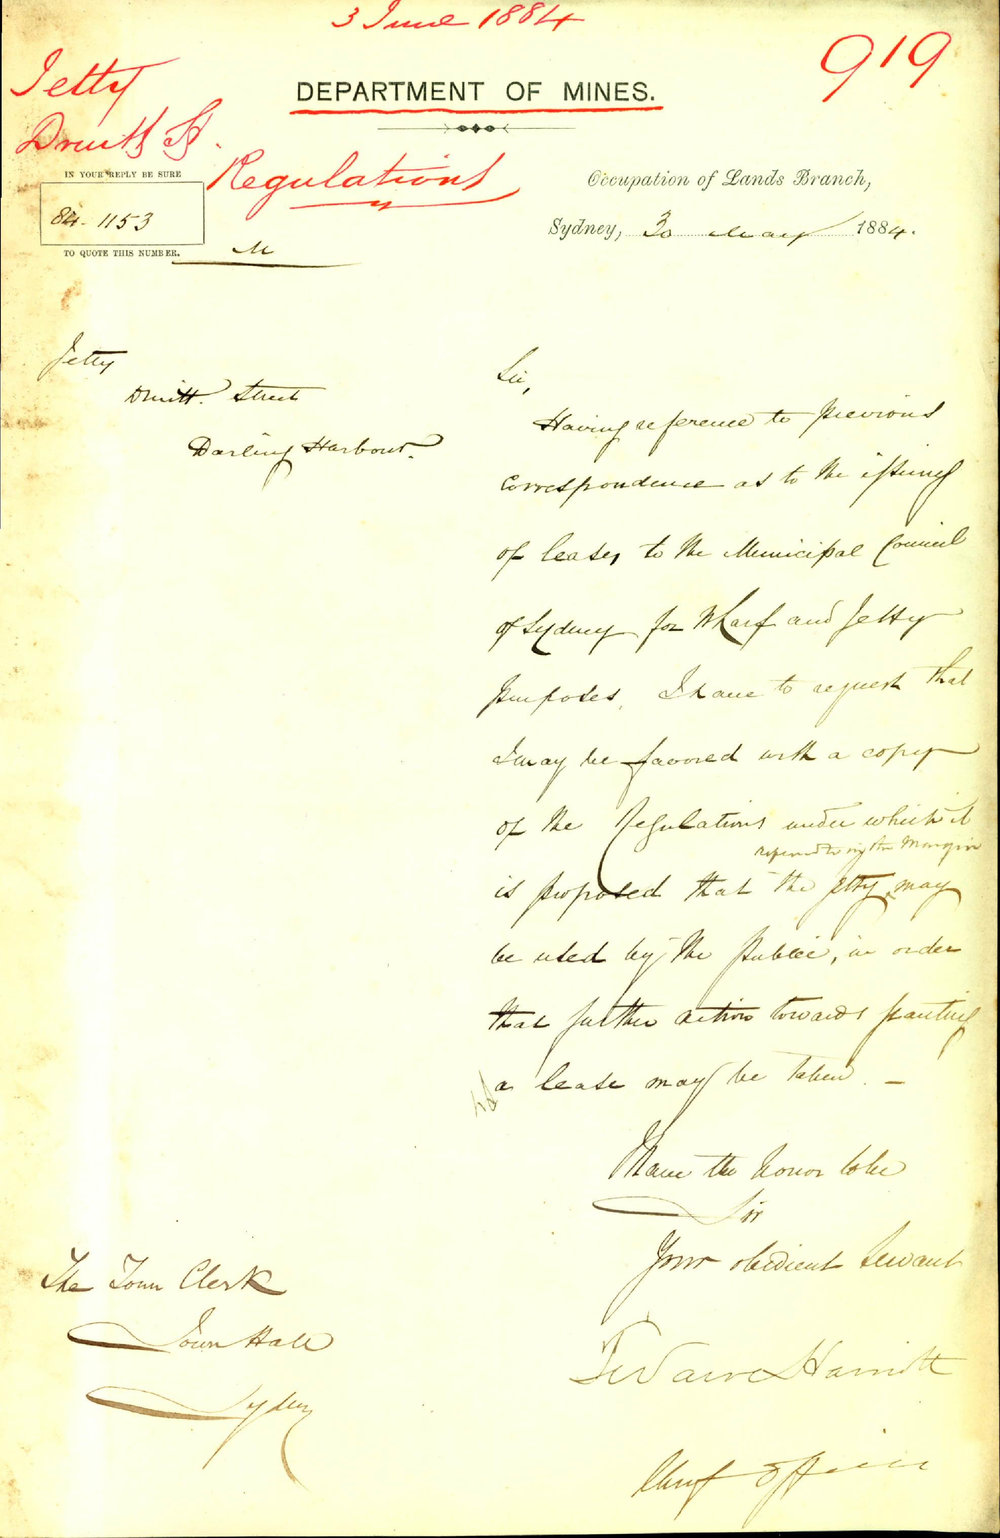 3 June 1884
919
Jetty
Druitt St.
Regulations
DEPARTMENT OF MINES.
IN YOUR REPLY BE SURE
84-1153
TO QUOTE THIS NUMBER.
M
Occupation of Lands Branch,
Sydney, 30 May 1884.
Jetty
Druitt Street
Darling Harbour.
Sir,
Having reference to previous
correspondence as to the issuing
of leases to the Municipal Council
of Sydney for Wharf and Jetty
purposes, I have to request that
I may be favored with a copy
of the Regulations under which it
referred to in the Margin
is proposed that the Jetty may
be used by the Public, in order
that further action towards granting
a lease may be taken. —
I have the honor to be
Sir
Your obedient Servant
Harriott
Chief Officer
The Town Clerk
Town Hall
Sydney